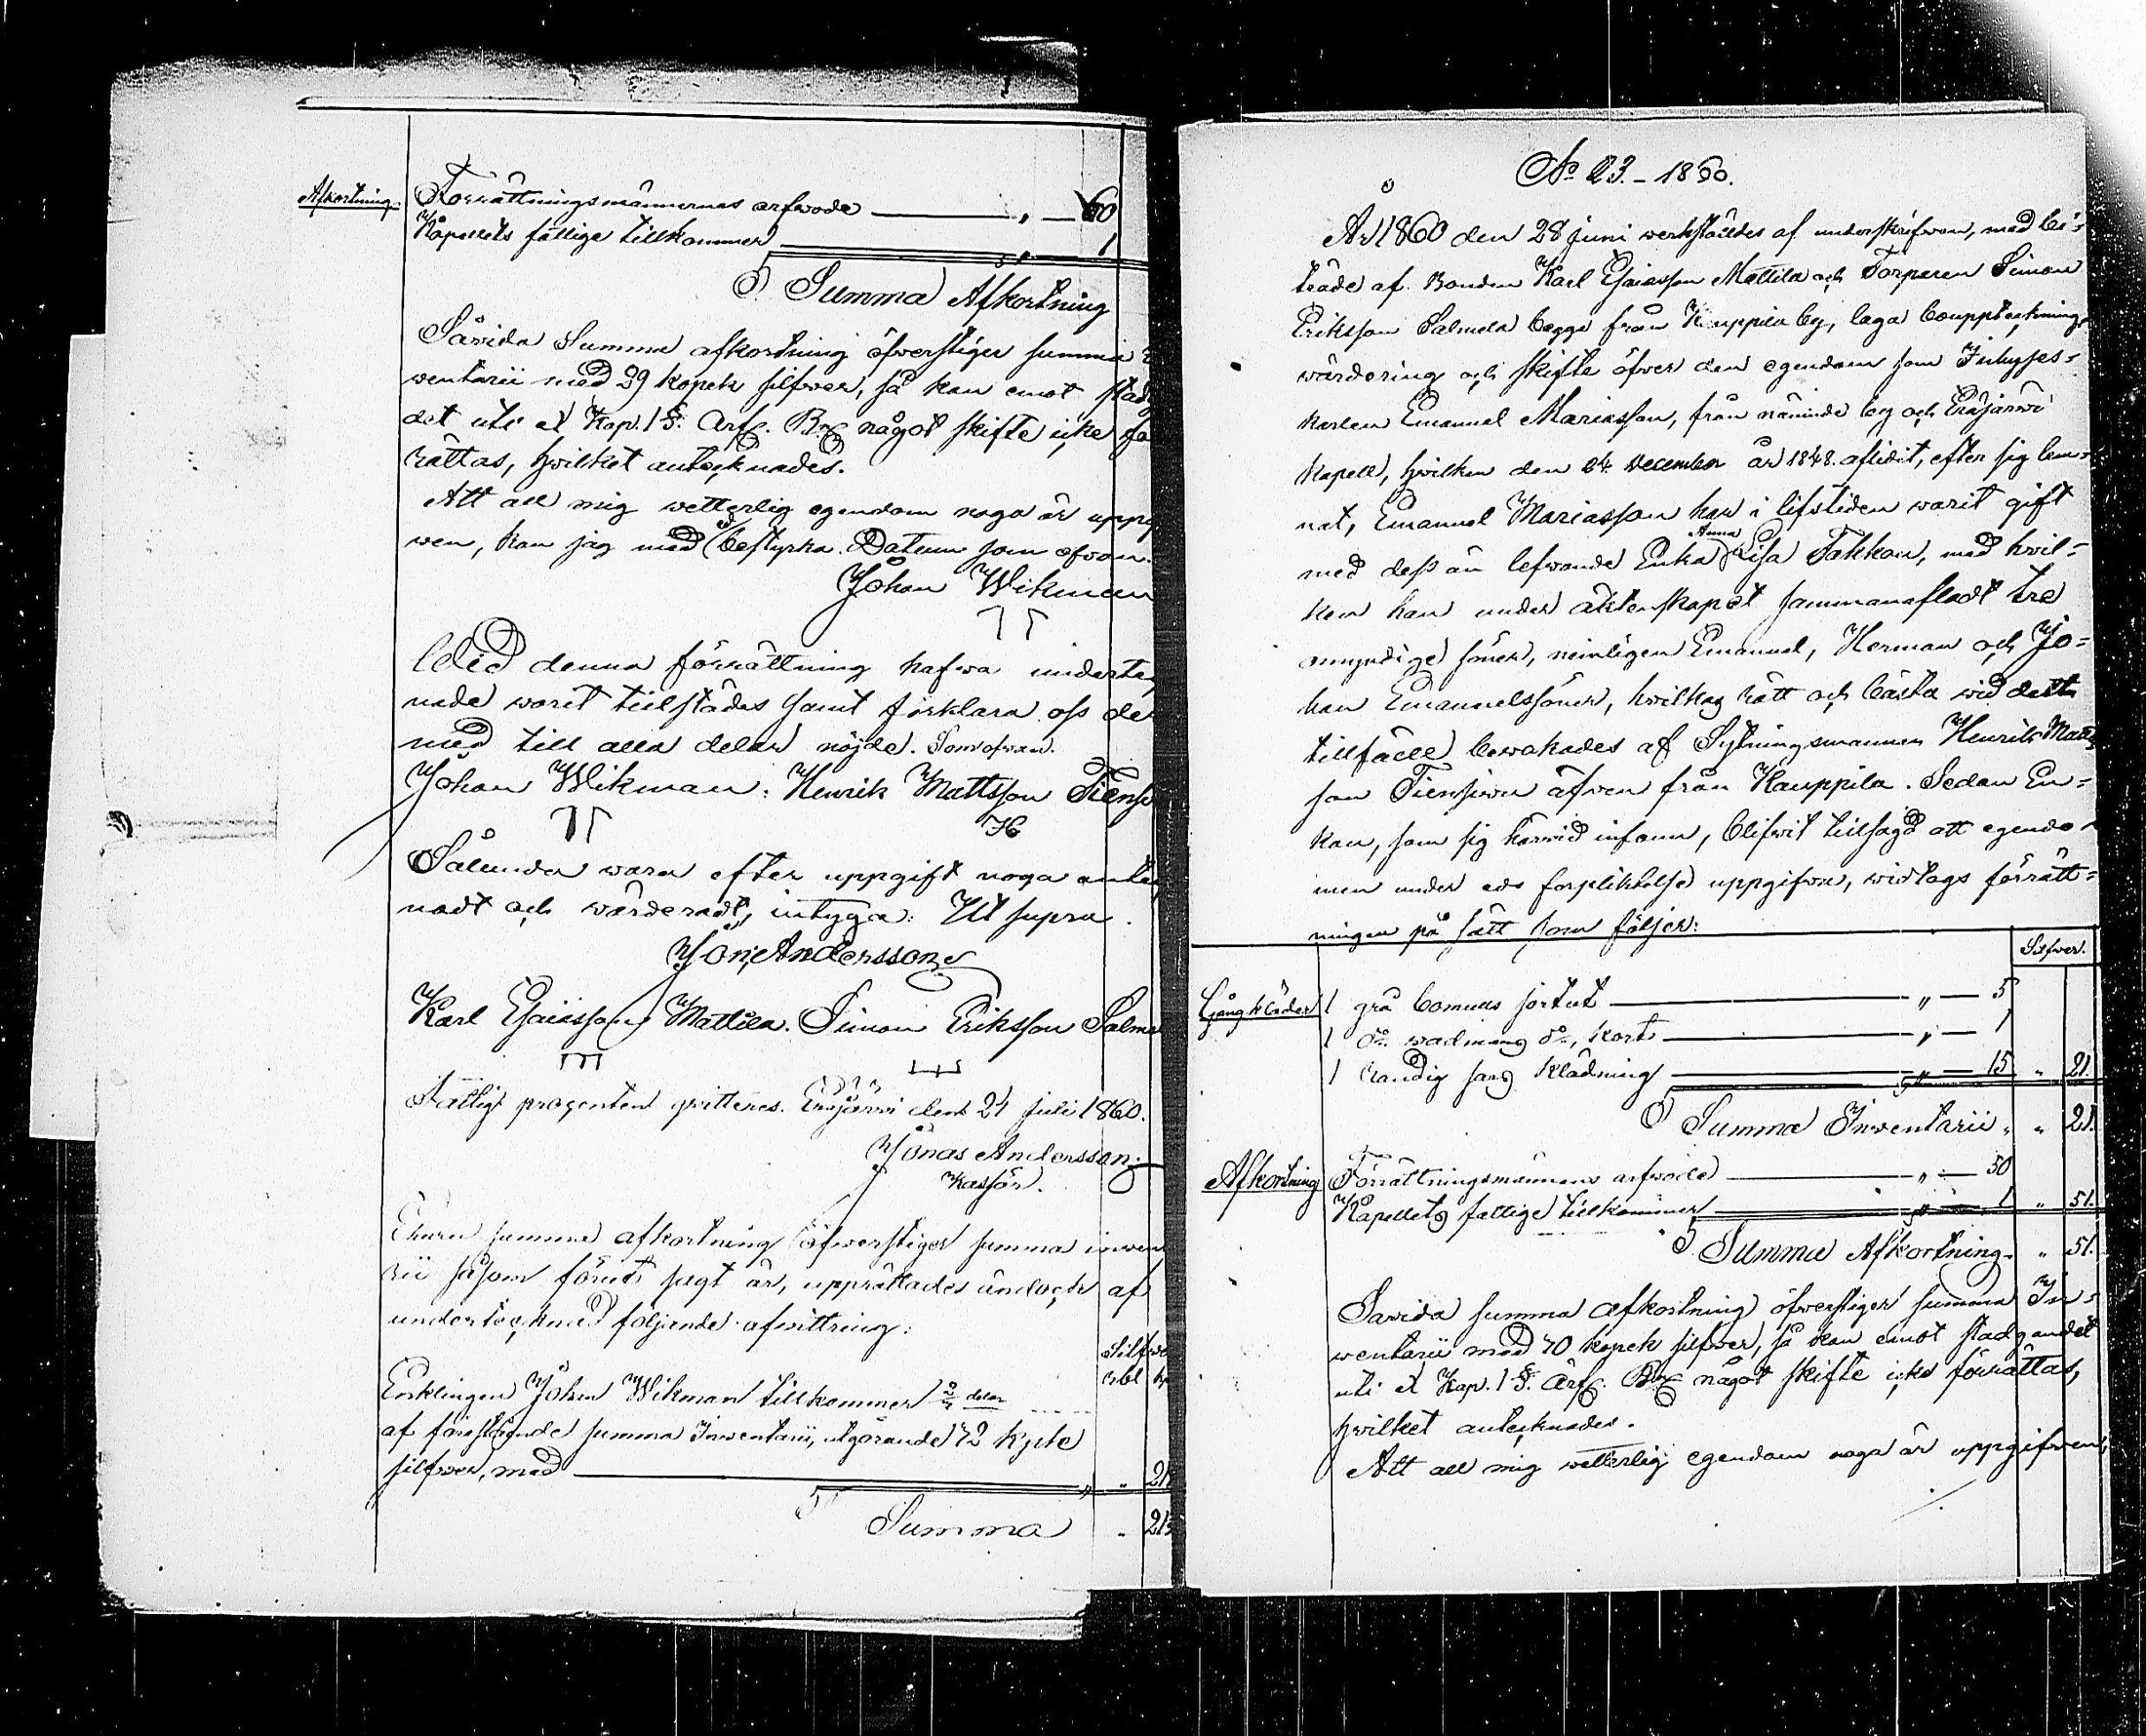 Afkortning. Förrättningsmännernas arfwode — „ — 60
Kapellets fattige tillkommer — „ — 1
S. Summa Afkortning
Såvida Summa afkortning öfwerstiger summa
ventarii med 29 kopek silfwer, så kan emot stad
det uti 21 Kap. 1 §. Arf. B. något skifte icke fö
rättas, hvilket antecknades.
Att all mig wetterlig egendom noga är uppg
wen, kan jag med bestyrka. Datum som ofvan.
Johan Wikman
Wid denna förrättning hafwa underte
nade warit tillstädes samt förklara oss de
med till alla delar nöjde. Som ofwan.
Johan Wikman. Henrik Mattsson Tiens
Sålunda wara efter uppgift noga ante
nadt och wärderadt, intyga: Ut supra.
Jon. Andersson
Karl Esaiasson Mattila. Simon Eriksson Salme
Fattig procenten qvitteras. Eräjärwi den 21 juli 1860.
Jonas Andersson
Kassör.
Ehuru summa afkortning öfwerstiger summa inwen
rii såsom förut sagt är, upprättades ändock af
undertecknad följande afwittring:
Silfwe
rbl kp
Enklingen Johan Wikman tillkommer 2/3 delar
af förestående summa Inwentarii, utgörande 32 kpk
silfwer, med — „ „ 21
Summa „ 21
No 23. - 1860.
År 1860 den 28 Juni werkställdes af underskrifwen, med bi-
träde af Bonden Karl Esaiasson Mattila och Torparen Simon
Eriksson Salmela bägge från Kauppila by, laga bouppteckning,
wärdering och skifte öfwer den egendom som Inhyses-
karlen Emanuel Mariasson, från nämnde by och Eräjärwi
Kapell, hvilken den 24 December år 1848. aflidit, efter sig lem-
nat, Emanuel Mariasson har i lifstiden warit gift
med dess än lefwande Enka Anna Lisa Takkou, med hwil-
ken han under äktenskapet sammanaflat tre
omyndige söner, nemligen Emanuel, Herman och Jo-
han Emanuelssöner, hwilkas rätt och bästa wid detta
tillfälle bewakades af Sytningsmannen Henrik Matts
son Tiensuu äfwen från Kauppila. Sedan En-
kan, som sig härwid infann, blifwit tillsagd att egendo
men under eds förpliktelse uppgifwa, widtogs förrätt-
ningen på sätt som följer:
Silfwer.
Gångkläder 1 grå bomulls sortut — „ — 5
1 do wadmans do, kort — „ — 1
1 randig sars klädning — „ — 15 „ 21.
S Summa Inwentarii „ „ 21.
Afkortning Förrättningsmännens arfwode — „ — 50
Kapellets fattige tillkommer — „ — 1 „ 51.
S Summa Afkortning. „ 51.
Såvida summa afkortning öfwerstiger summa In-
wentarii med 30 kopek silfwer, så kan emot stadgandet
uti 21 Kap. 1 §. Arf. B. något skifte icke förrättas,
hvilket antecknades.
Att all mig wetterlig egendom noga är uppgifwen,